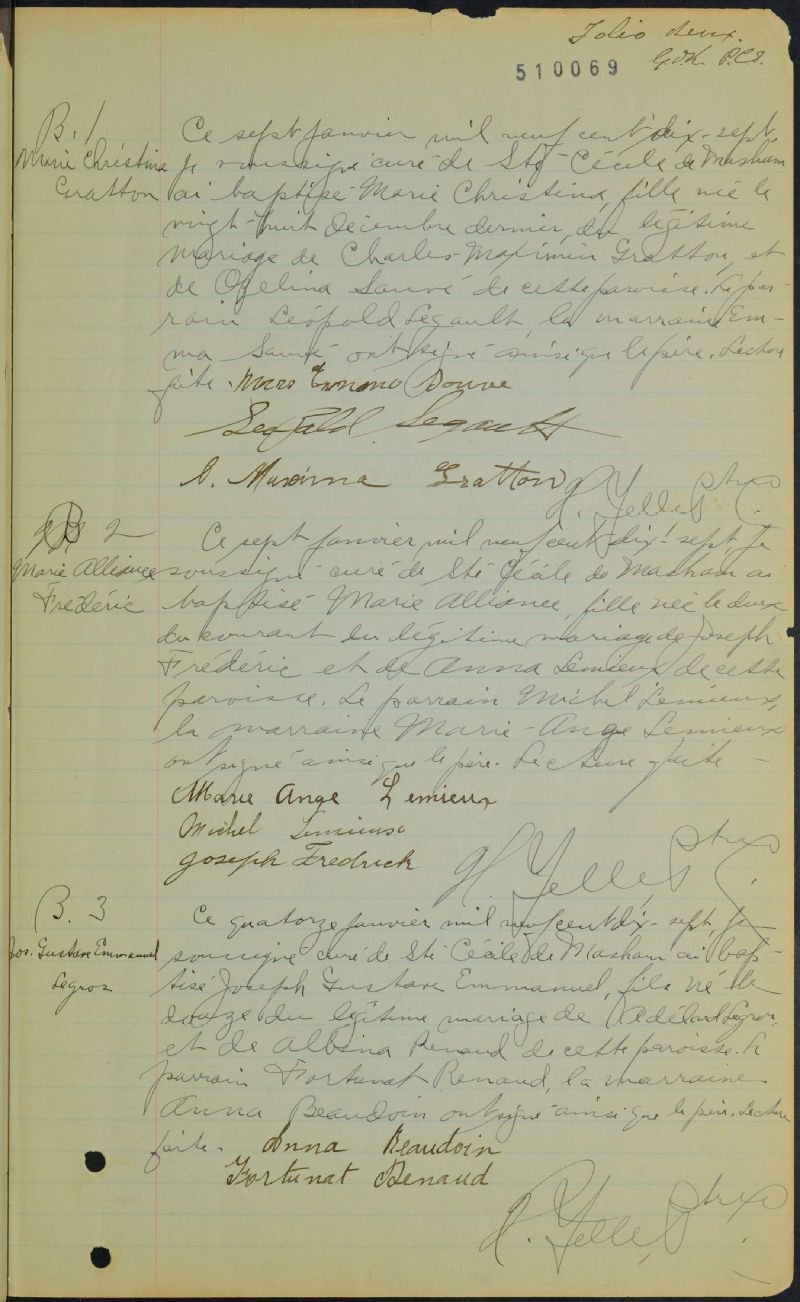 Folio deux.
510069
B. 1
Marie Christina
Gratton
Ce sept janvier mil neuf cent dix-sept,
je soussigné curé de Ste Cécile de Masham
ai baptisé Marie Christina, fille née le
vingt-huit décembre dernier, du légitime
mariage de Charles-Maximin Gratton, et
de Ofelina Sauvé de cette paroisse. Le par-
rain Léopold Legault, la marraine Em-
ma Sauvé ont signé ainsi que le père. Lecture
faite.
Legault
Gratton
B 2
Marie Alliance
Frédéric
Ce sept janvier mil neuf cent dix-sept, je
soussigné curé de Ste Cécile de Masham ai
baptisé Marie Alliance, fille née le deux
du courant du légitime mariage de Joseph
Frédéric et de Anna Lemieux de cette
paroisse. Le parrain Michel Lemieux,
la marraine Marie-Ange Lemieux
ont signé ainsi que le père. Lecture faite —
Marie Ange Lemieux
Michel Lemieux
Joseph Fredrick
B. 3
Jos. Gustave Emmanuel
Legros
Ce quatorze janvier mil neuf cent dix-sept, je
soussigné curé de Ste Cécile de Masham ai bap-
tisé Joseph Gustave Emmanuel, fils né le
douze du légitime mariage de Adélard Legros
et de Albina Renaud de cette paroisse. Le
parrain Fortunat Renaud, la marraine
Anna Beaudoin ont signé ainsi que le père. Lecture
faite. Anna Beaudoin
Fortunat Renaud